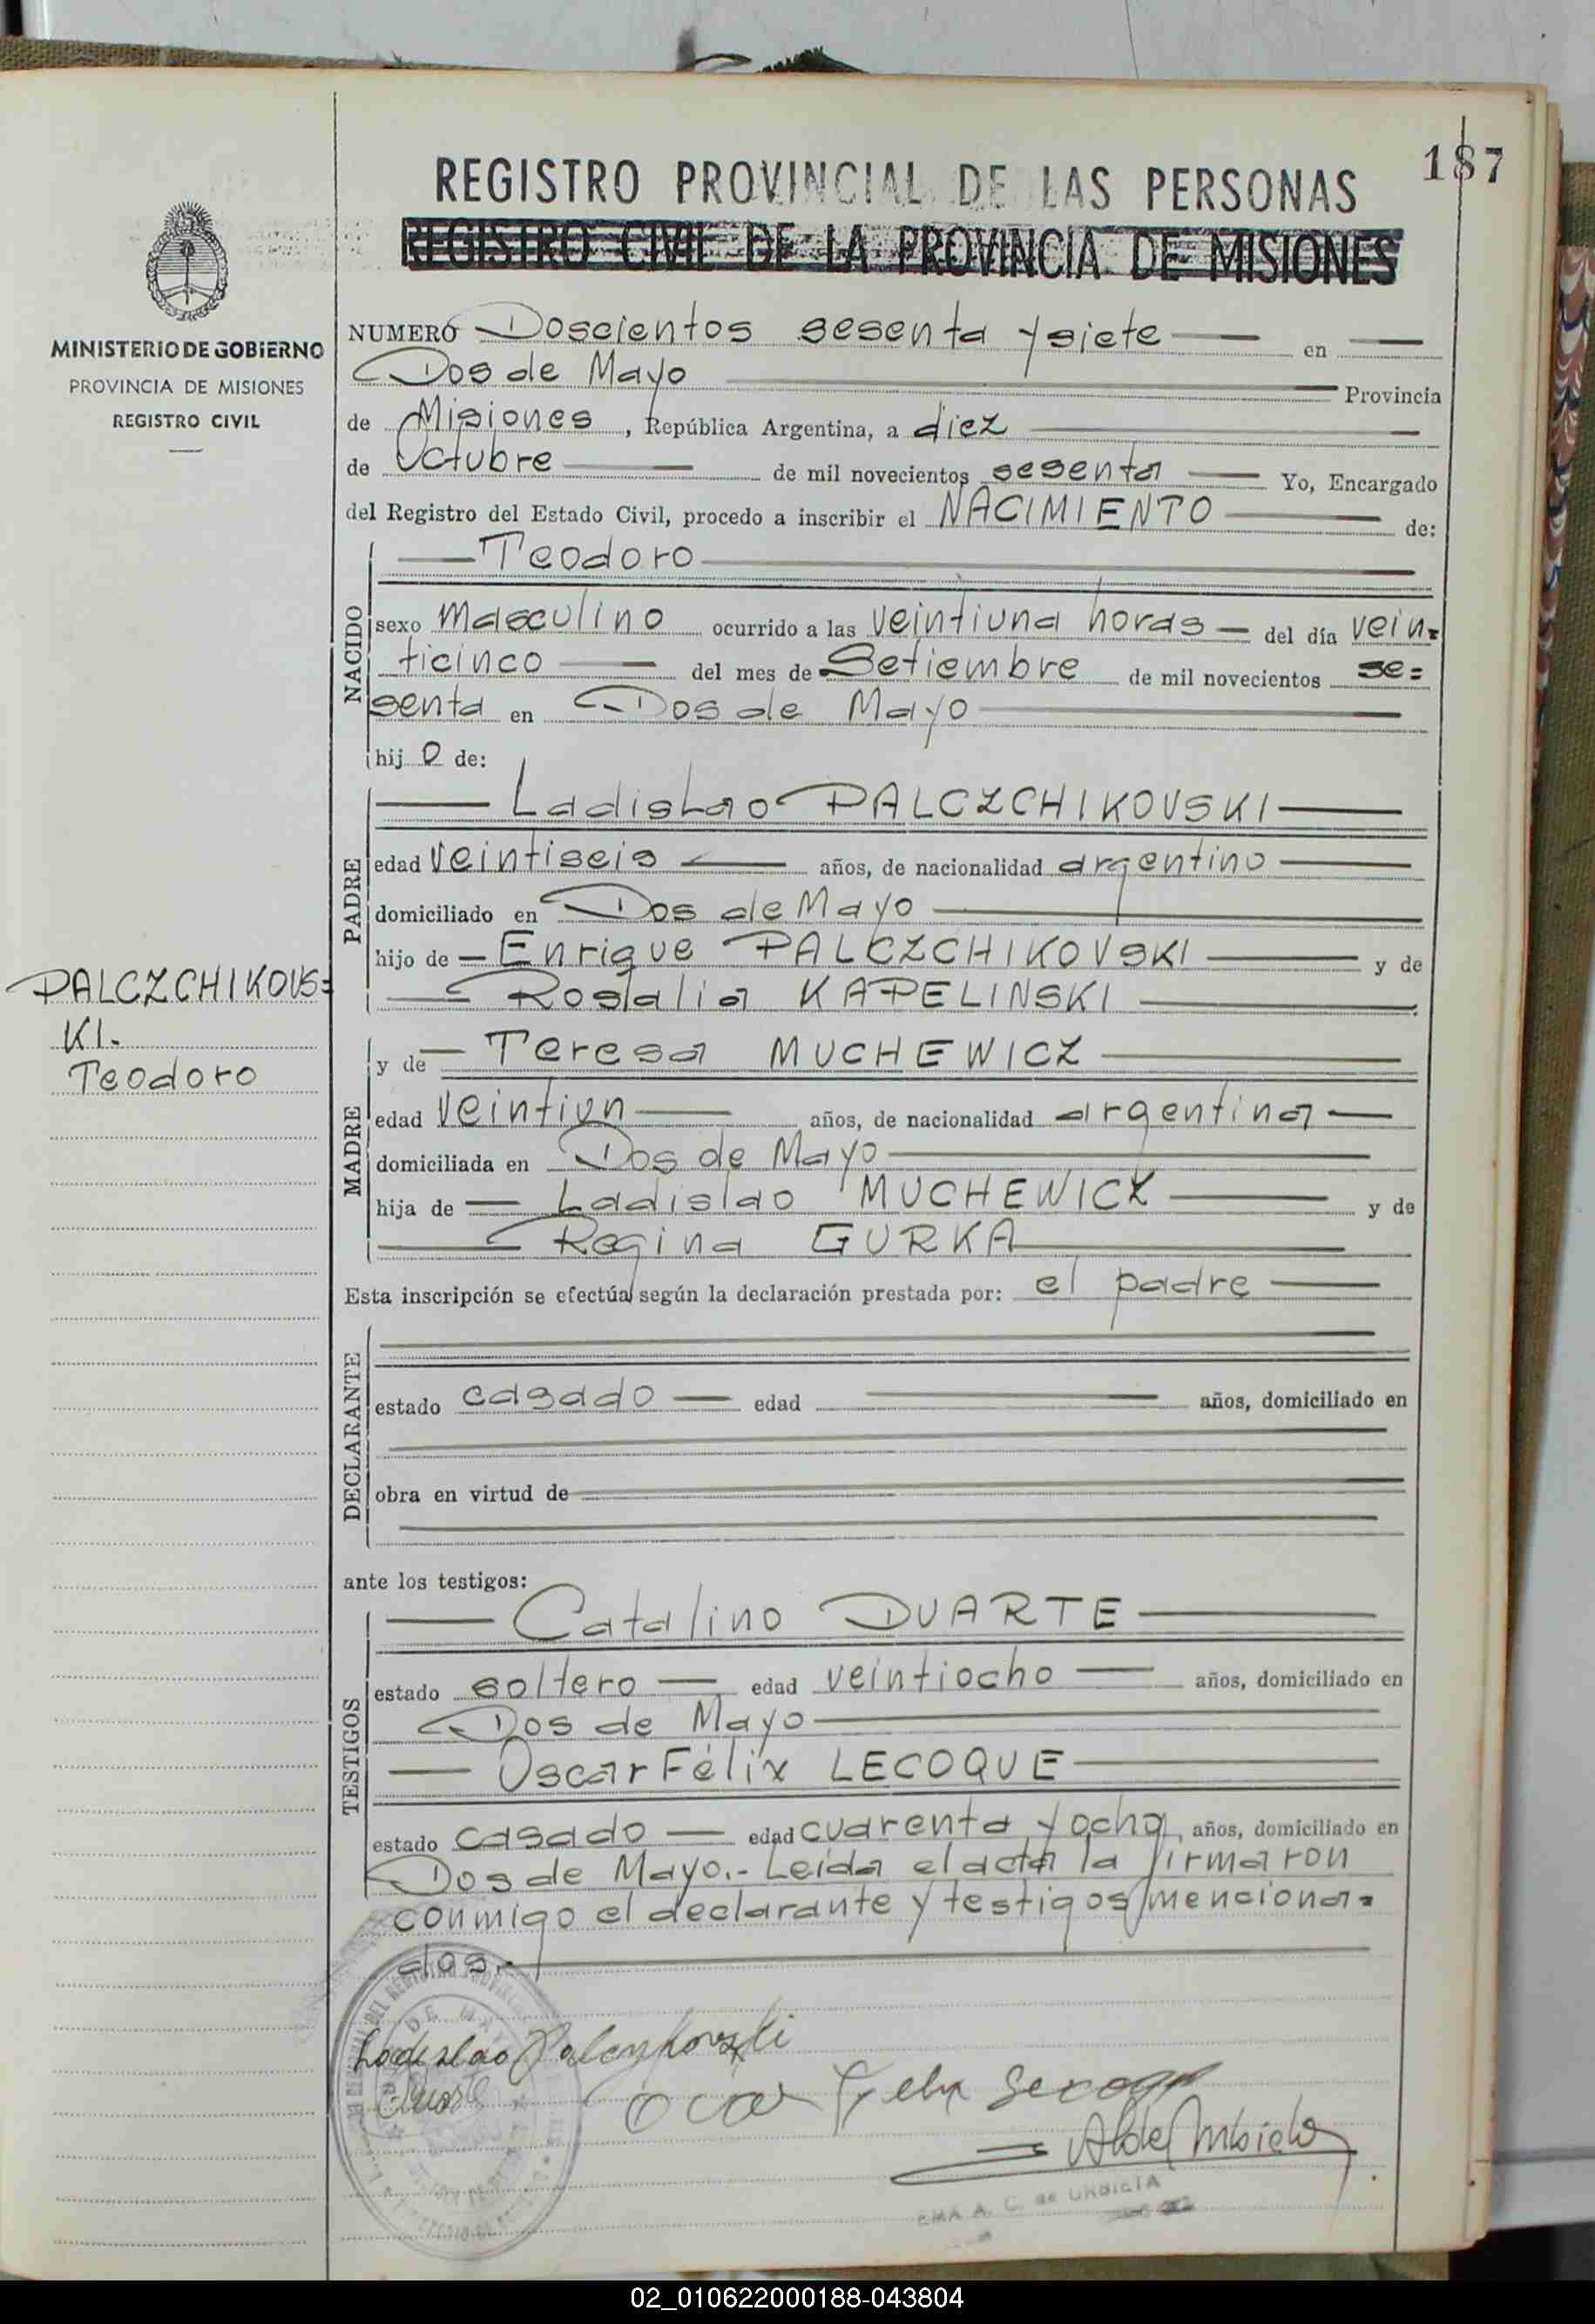 187
REGISTRO PROVINCIAL DE LAS PERSONAS
REGISTRO CIVIL DE LA PROVINCIA DE MISIONES
MINISTERIO DE GOBIERNO
PROVINCIA DE MISIONES
REGISTRO CIVIL
NUMERO Doscientos sesenta y siete en
Dos de Mayo Provincia
de Misiones, República Argentina, a diez
de Octubre de mil novecientos sesenta Yo, Encargado
del Registro del Estado Civil, procedo a inscribir el NACIMIENTO de:
NACIDO
Teodoro
sexo masculino ocurrido a las veintiuna horas del día vein-
ticinco del mes de Setiembre de mil novecientos se=
senta en Dos de Mayo
hij o de:
PADRE
Ladislao PALCZCHIKOVSKI
edad veintiseis años, de nacionalidad argentino
domiciliado en Dos de Mayo
hijo de Enrique PALCZCHIKOVSKI y de
Rosalia KAPELINSKI
PALCZCHIKOVS=
KI.
Teodoro
MADRE
y de Teresa MUCHEWICZ
edad veintiun años, de nacionalidad argentina
domiciliada en Dos de Mayo
hija de Ladislao MUCHEWICZ y de
Regina GURKA
Esta inscripción se efectúa según la declaración prestada por: el padre
DECLARANTE
estado casado edad años, domiciliado en
obra en virtud de
ante los testigos:
TESTIGOS
Catalino DUARTE
estado soltero edad veintiocho años, domiciliado en
Dos de Mayo
Oscar Félix LECOQUE
estado casado edad cuarenta y ocho años, domiciliado en
Dos de Mayo.- Leída el acta la firmaron
conmigo el declarante y testigos menciona=
dos.-
Ladislao
EMA A. C. de URBIETA
02_010622000188-043804